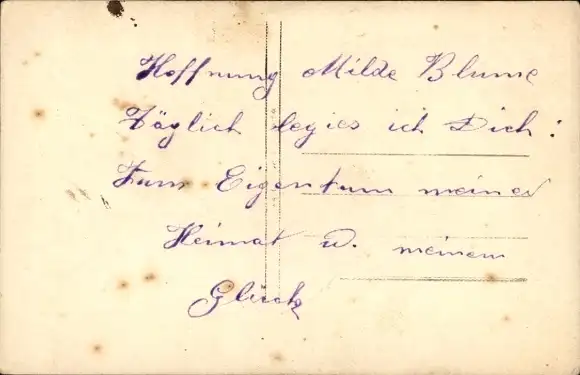 Hoffnung Milde Blume
Täglich begies ich Dich:
Zum Eigentum meiner
Heimat u. meinem
Glück